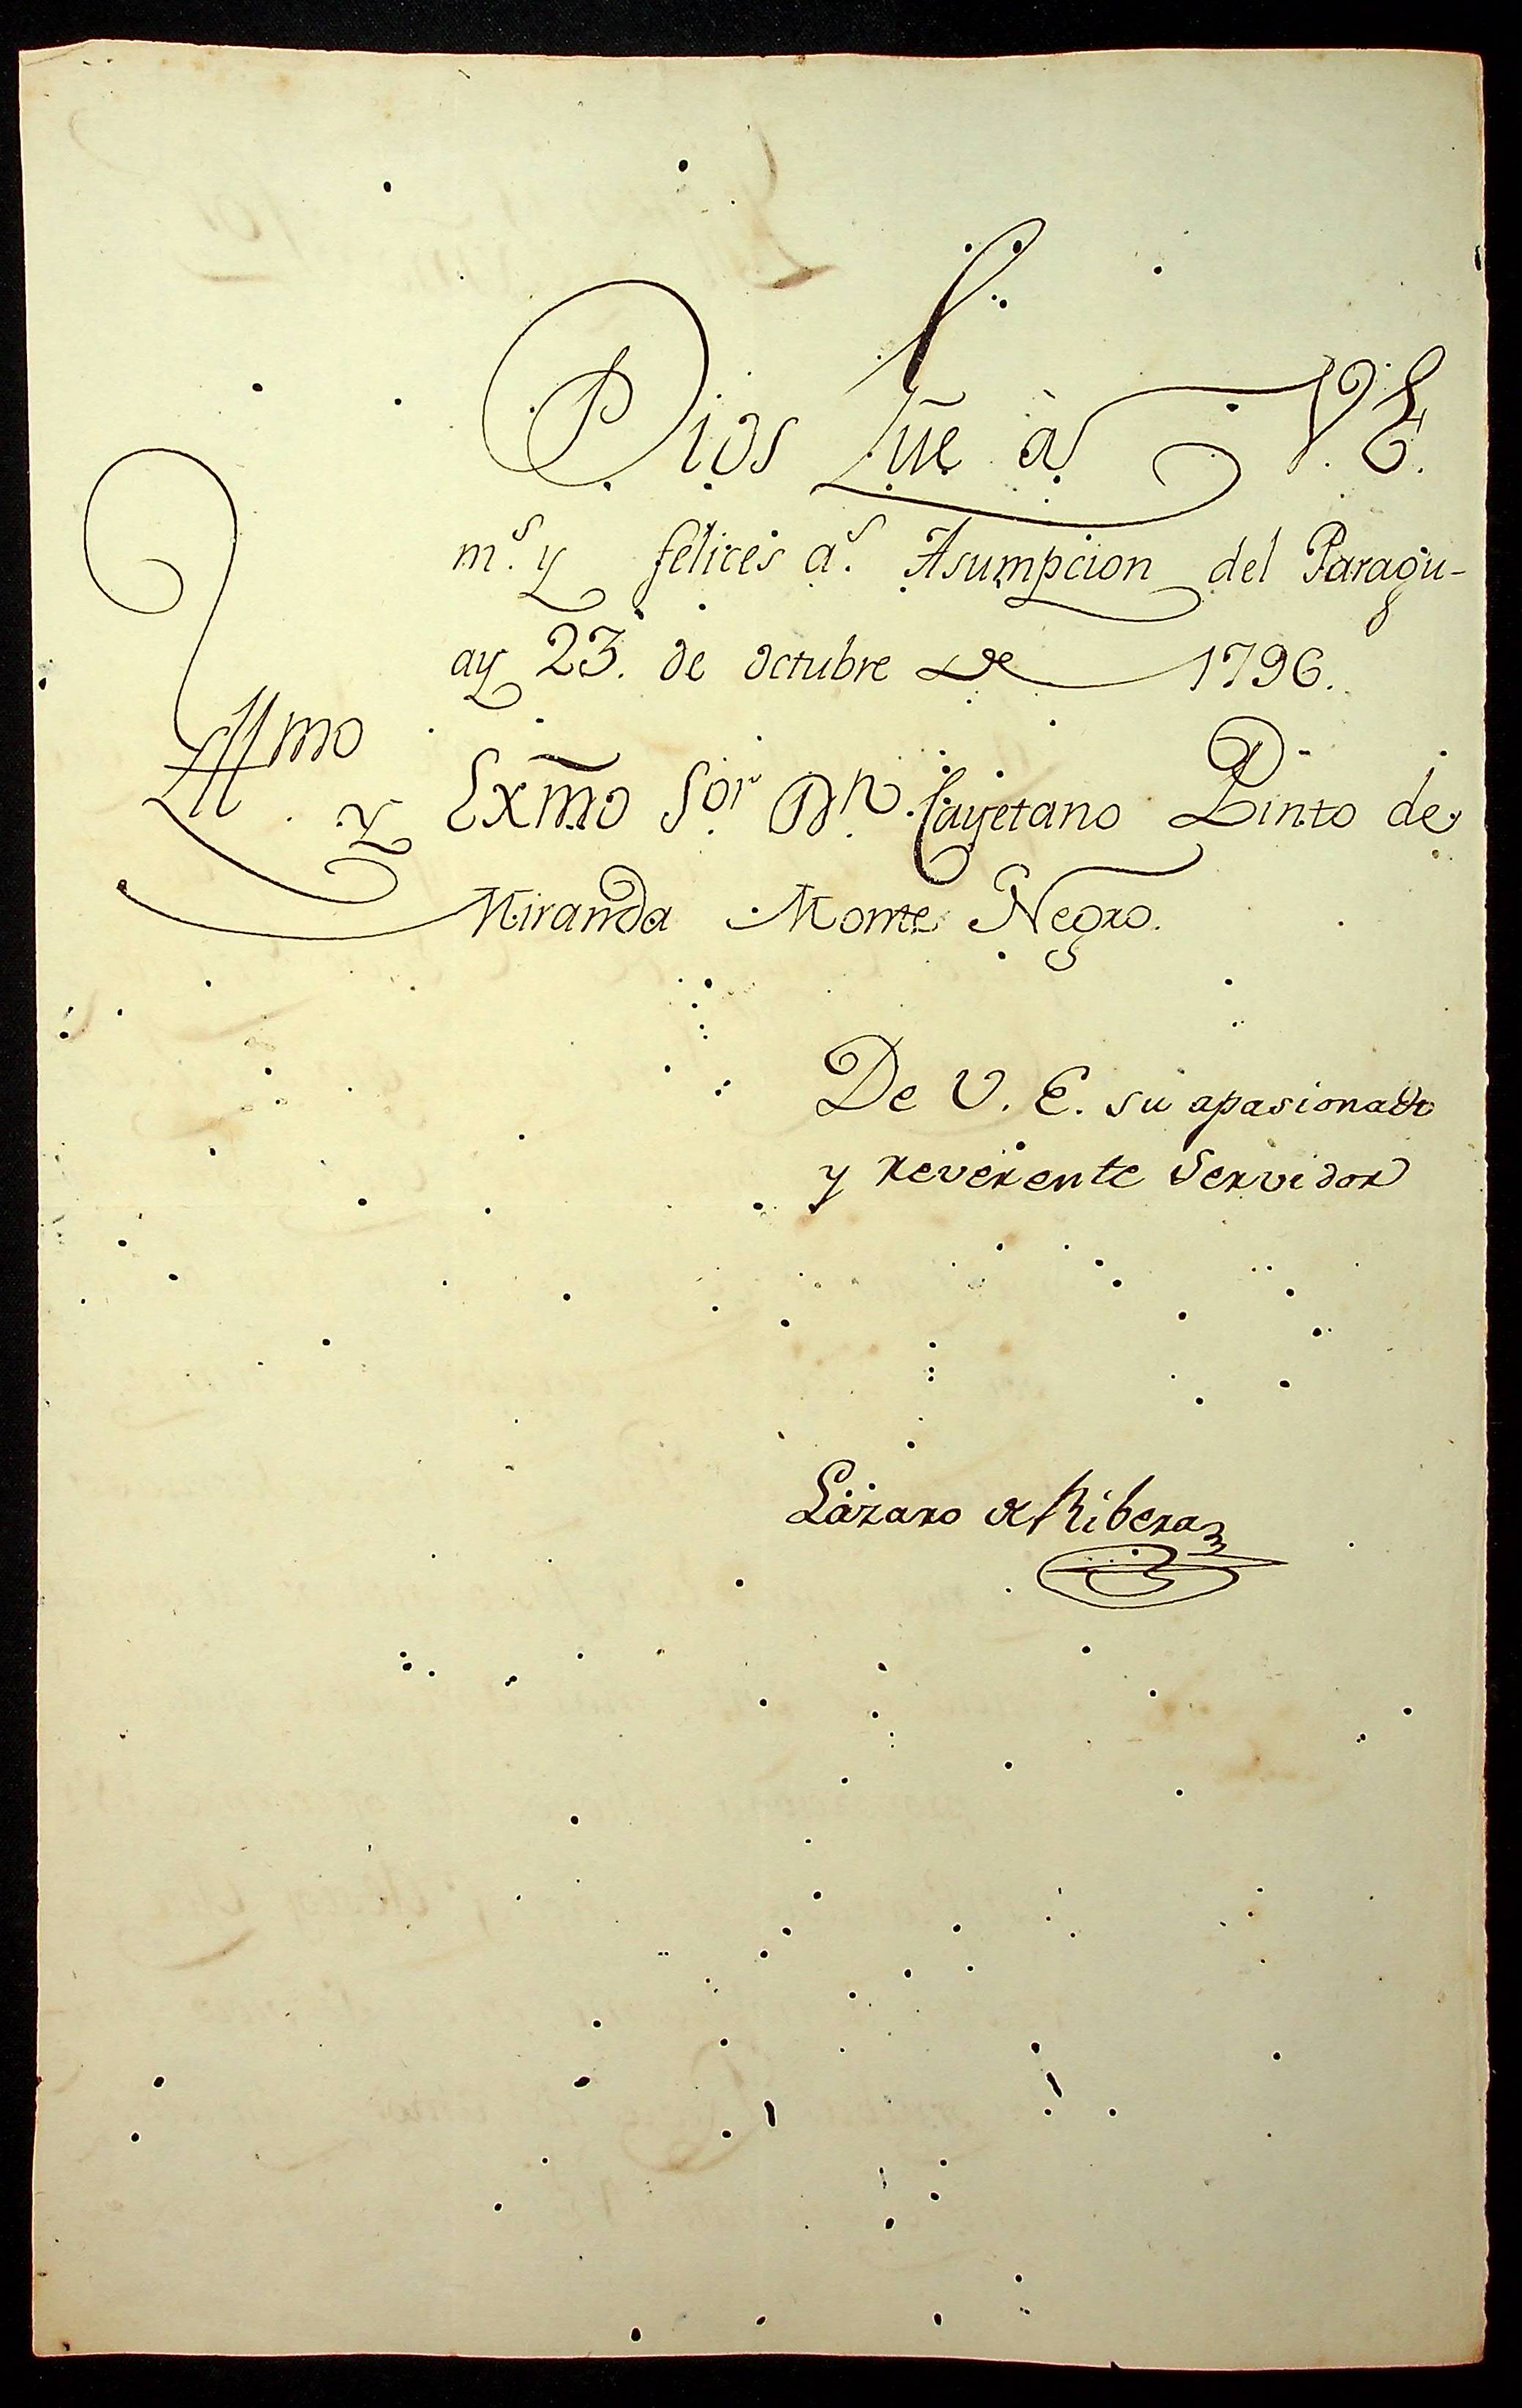 Dios gũe a V. E.
m.s y felices a.s Asumpcion del Paragu-
ay 23. de octubre de 1796.
Illmo
y Exm̃o S.or D.n Cayetano Pinto de
Miranda Monte Negro.
De V. E. su apasionado
y reverente Servidor
Lázaro de Ribera